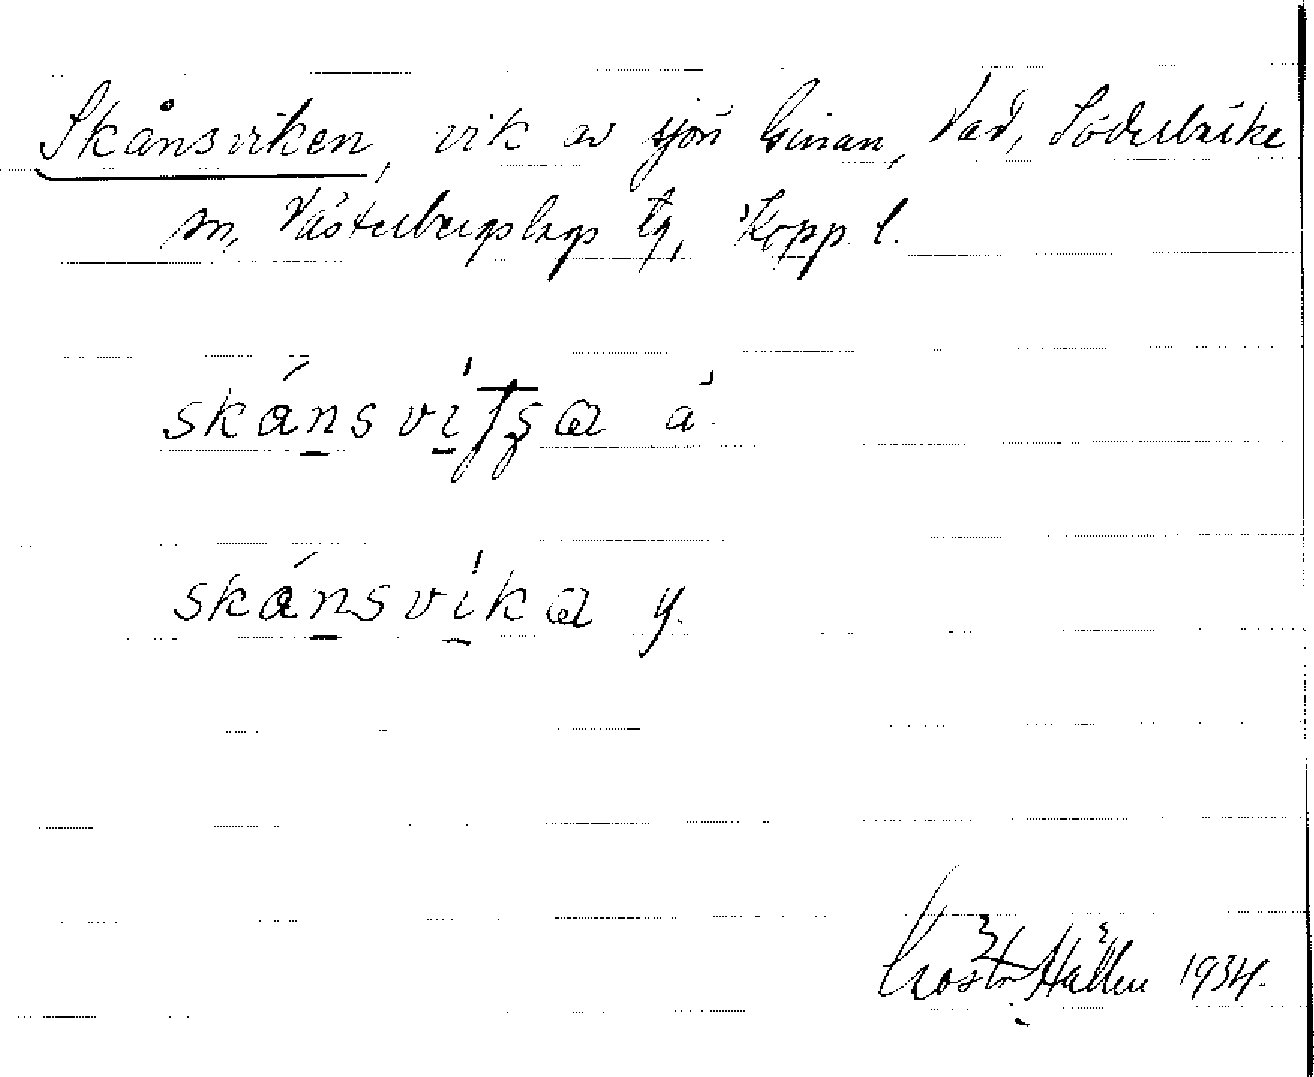 Skånsviken, vik av sjön Gussan, Vad, Söderbärke
sn, Västerbergslags tg, Kopp. l.
skánsvi̱ʈʂa ä.
skánsvi̱ka y.
Hällén 1934.